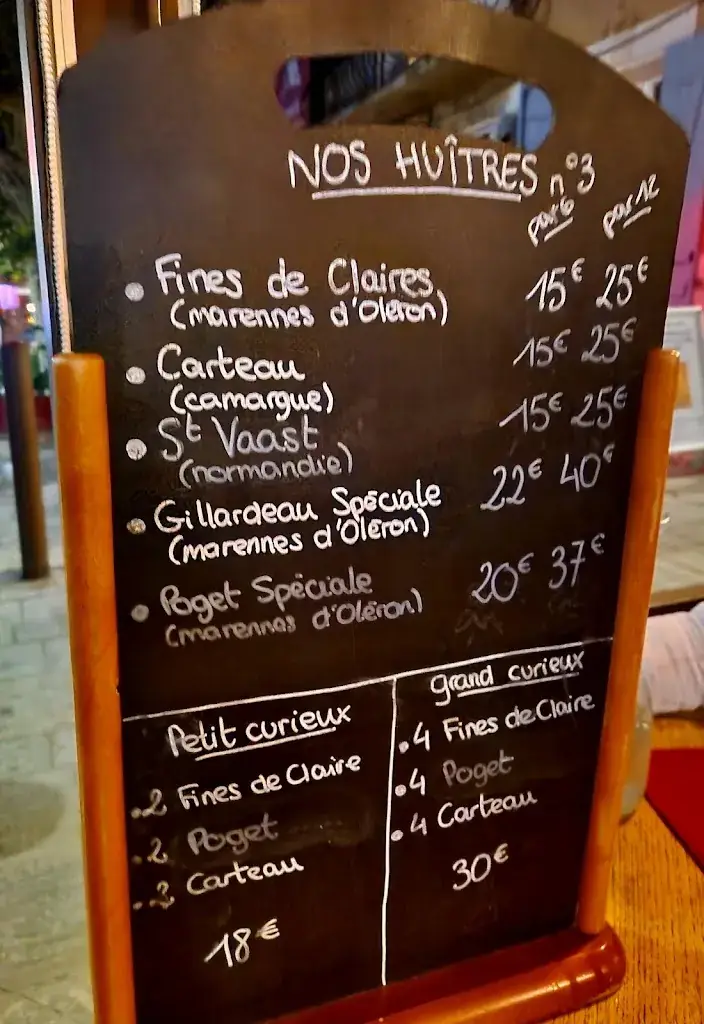 NOS HUÎTRES n°3
par 6 par 12
• Fines de Claires 15€ 25€
(marennes d'Oléron)
• Carteau 15€ 25€
(camargue)
• St Vaast 15€ 25€
(normandie)
• Gillardeau Spéciale 22€ 40€
(marennes d'Oléron)
• Poget Spéciale 20€ 37€
(marennes d'Oléron)
Petit curieux
.2 Fines de Claire
.2 Poget
.2 Carteau
18€
grand curieux
.4 Fines de Claire
.4 Poget
.4 Carteau
30€